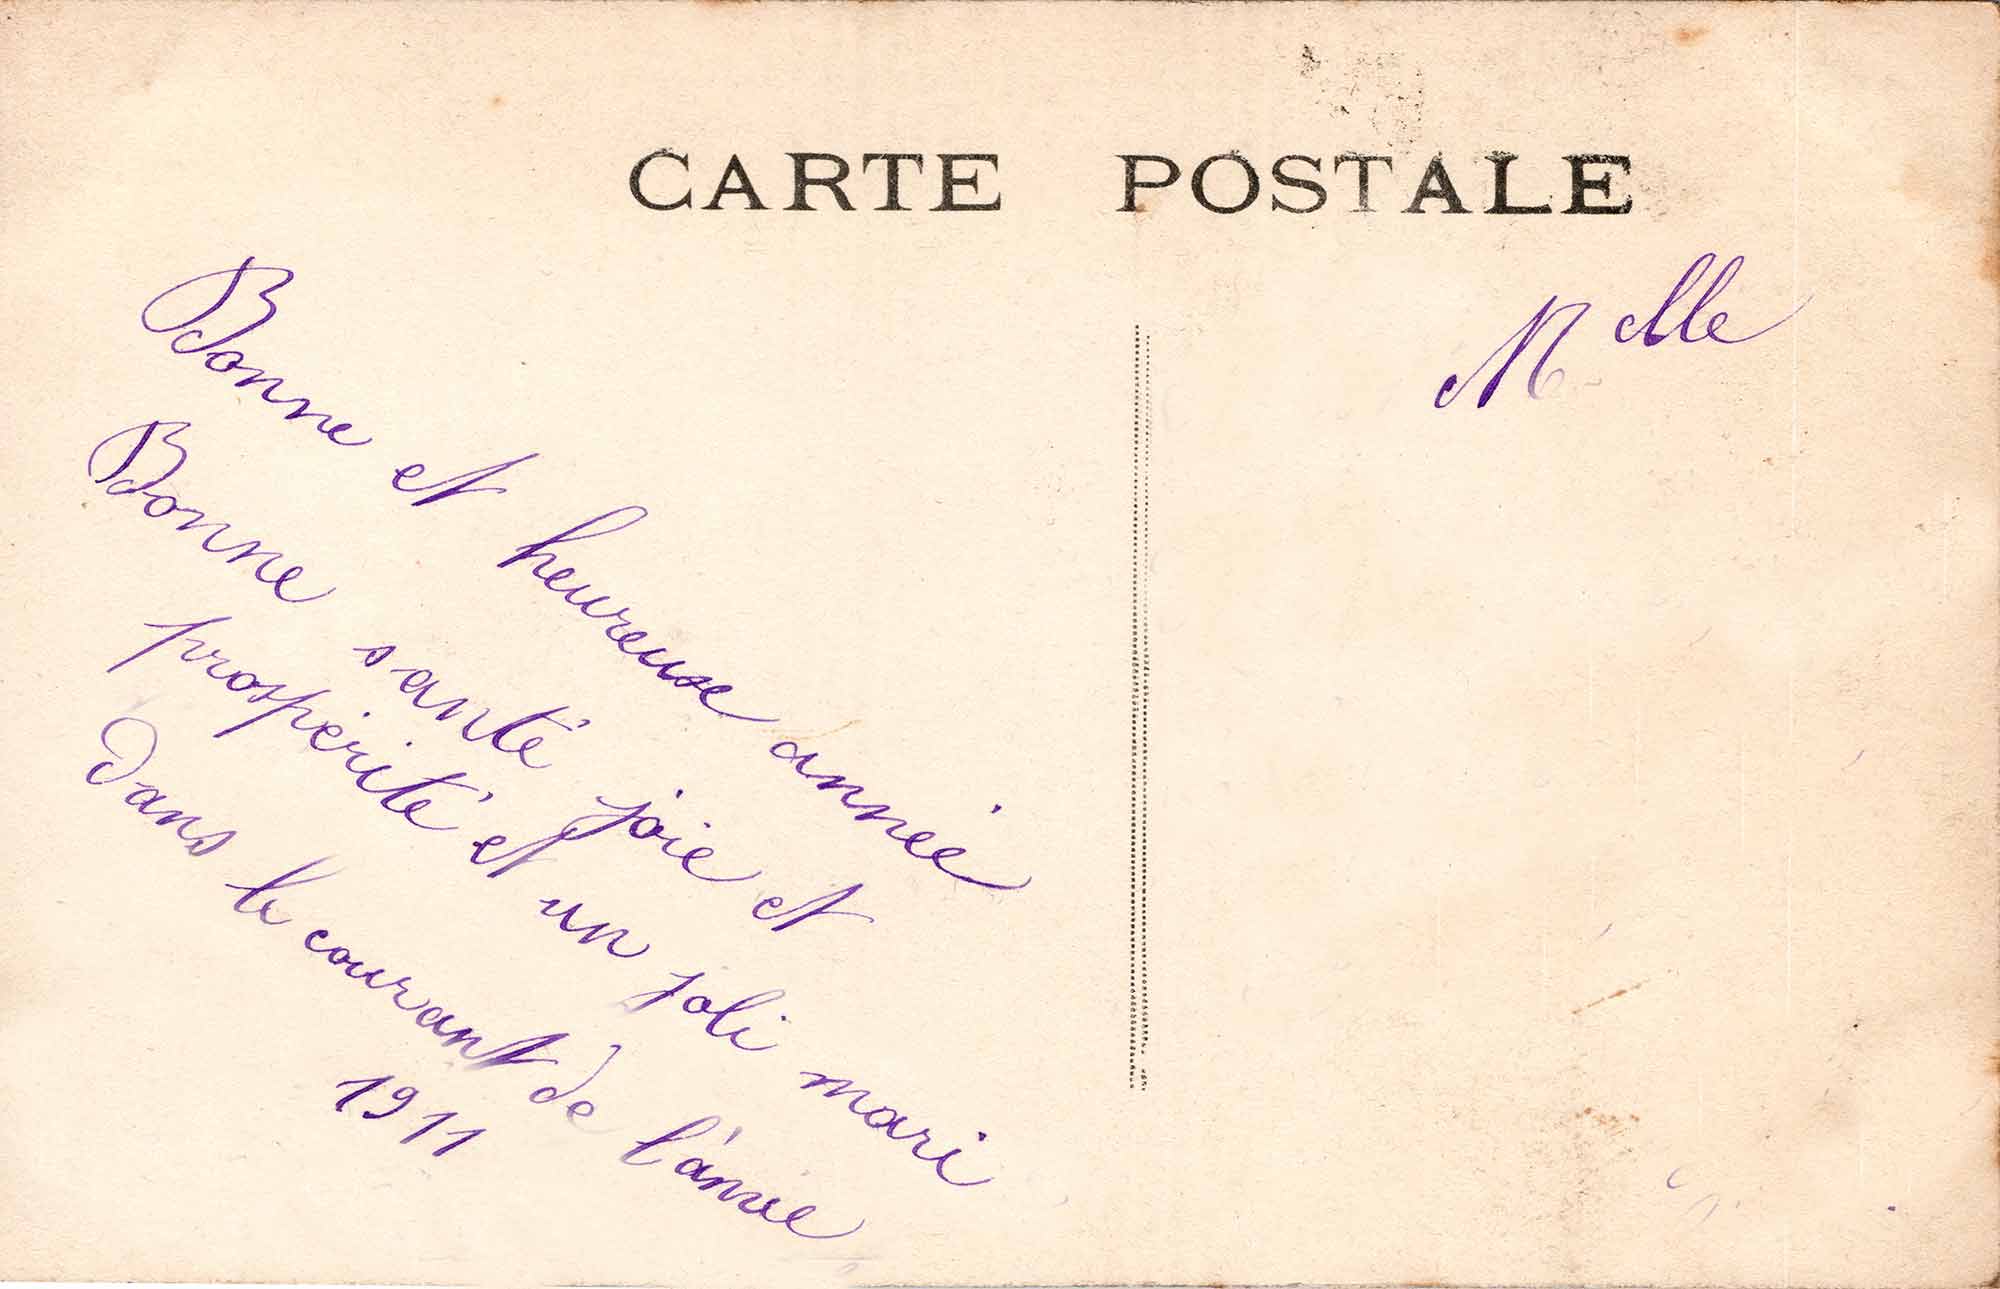 CARTE POSTALE
Bonne et heureuse année
Bonne santé joie et
prospérité et un joli mari
dans le courant de l'année
1911
Melle